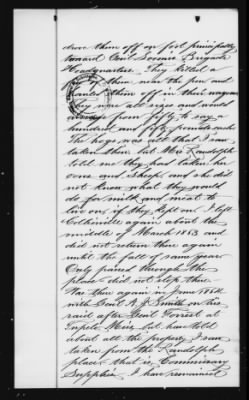 drove them off on foot principally
toward Genl Dorence Brigade
Headquarters. They killed a
few of them near the pen and
hauled them off in their wagons
They were all sizes and would
average from fifty to say a
hundred and fifty pounds each.
The hogs was all that I saw
taken then but Mrs Randolph
told me they had taken her
cows and sheep and she did
not know what they would
do for milk and meat to
live on if they kept on. I left
Colliersville again about the
middle of March 1863 and
did not return there again
until the fall of same year
Only passed through the
place - did not stop there
Was there again in June 1864
with Genl A. J. Smith on his
raid after Genl Forrest at
Tupelo, Miss. but was told
about all the property I saw
taken from the Randolph
place - that is Commissary
Supplies. I have remained